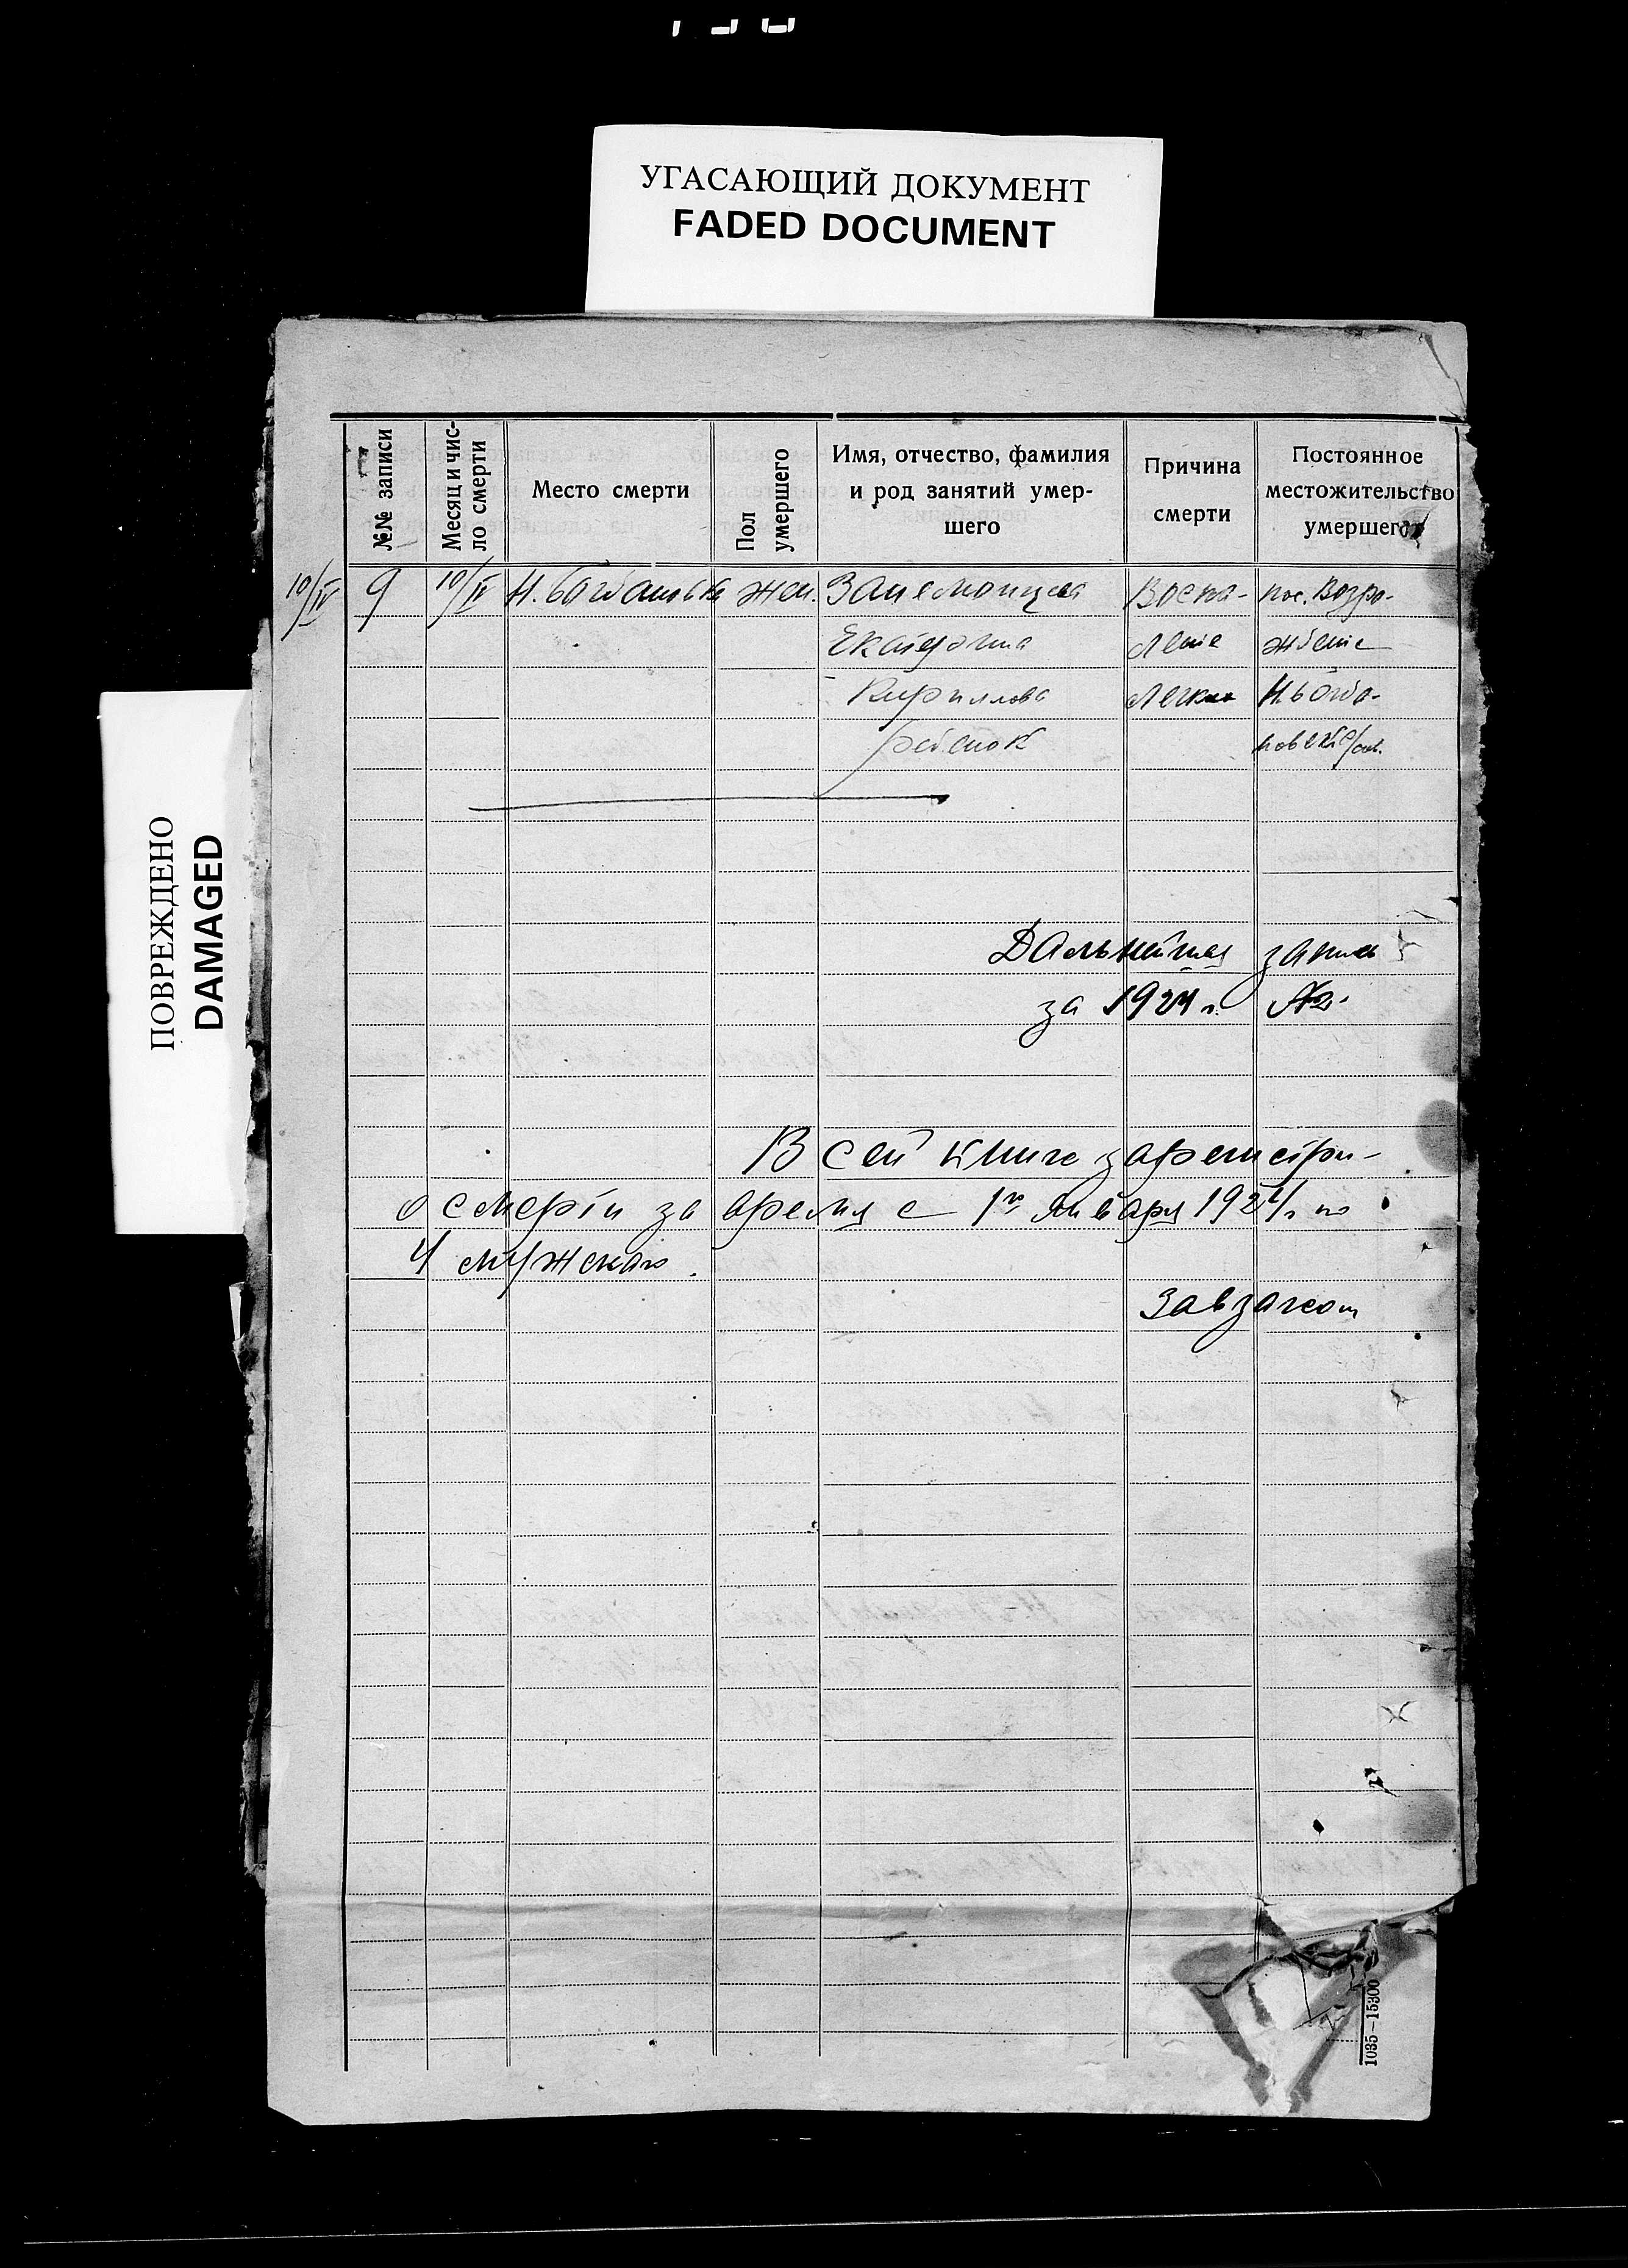 УГАСАЮЩИЙ ДОКУМЕНТ
FADED DOCUMENT
ПОВРЕЖДЕНО
DAMAGED
№№ записи
Месяц и чис-
ло смерти
Место смерти
Пол
умершего
Имя, отчество, фамилия
и род занятий умер-
шего
Причина
смерти
Постоянное
местожительство
умершего
10/IV 9 10/IV Н. Богдановка жен. Воспа- пос. Возро-
Екатерина ление ждение
Кириллова легких Н. Богда-
ребенок
Дальнейшая запись
за 1924 г.
В сей книге зарегистри-
о смерти за время с 1го января 1924 г. по
4 мужского.
Завзагсом
1035–15300